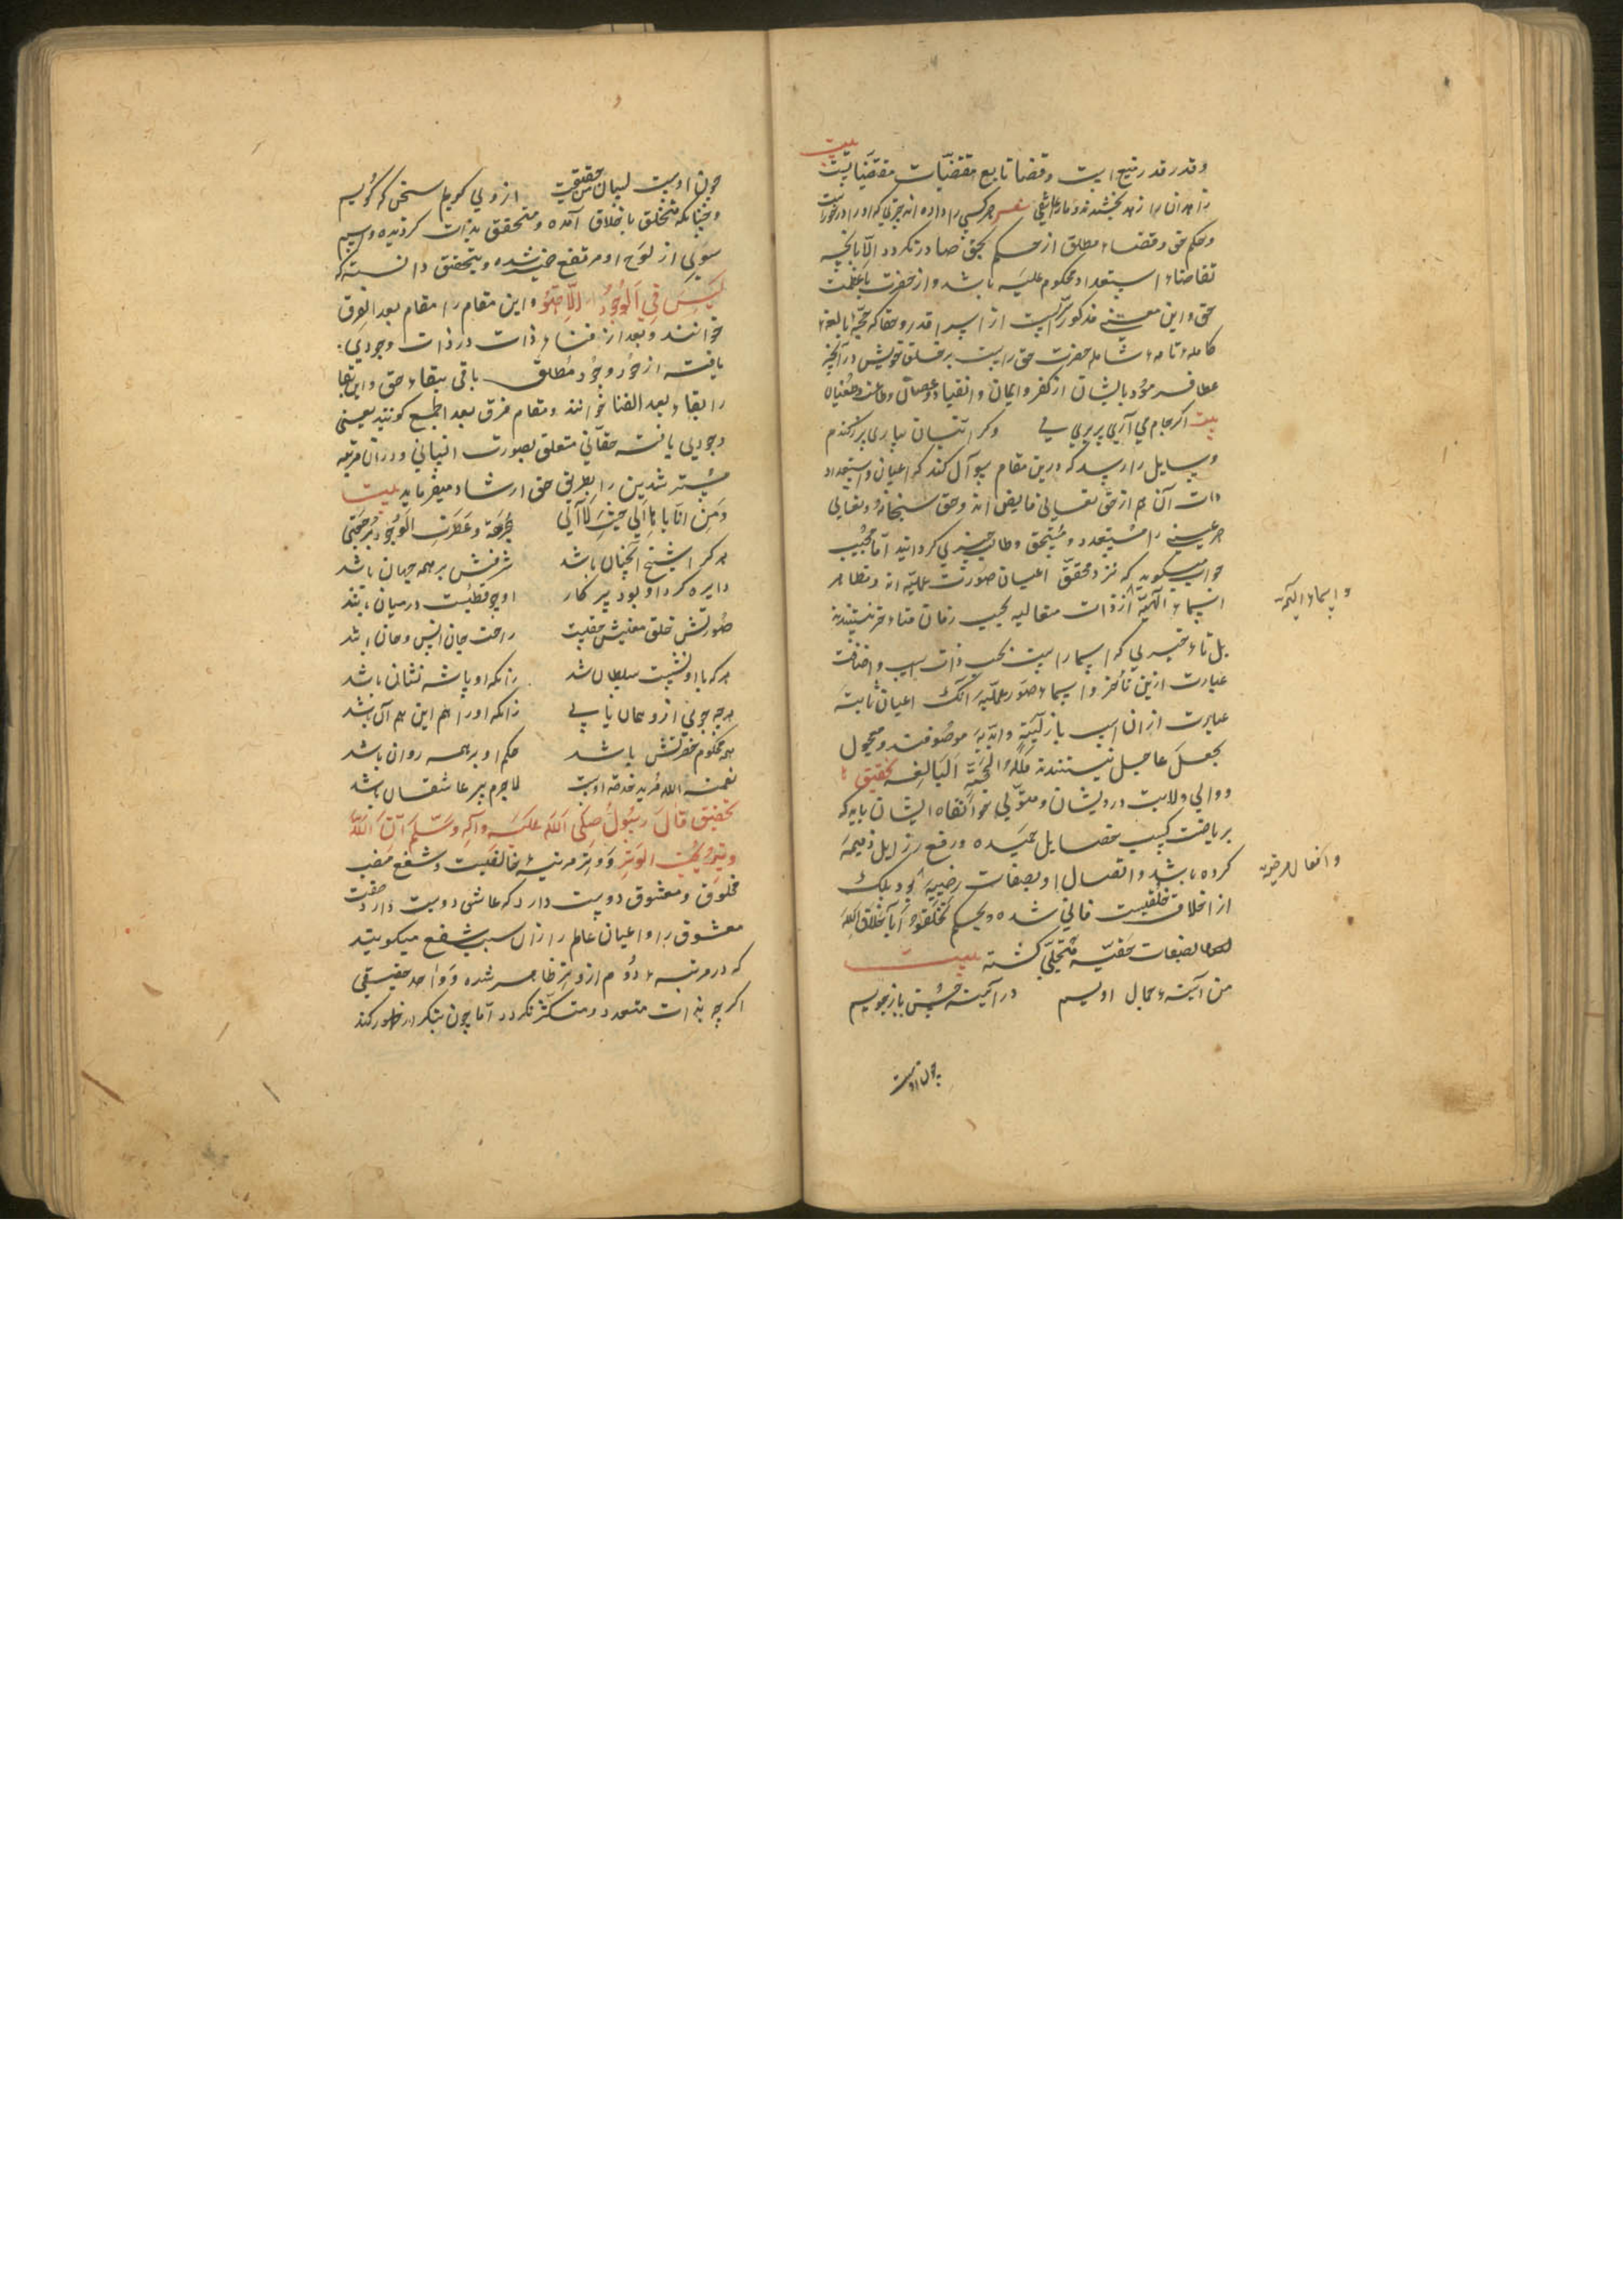 بیت
و قدر قدر منیع است و قضا تابع مقتضیات
زاهدان را زهد بخشیدند و مارا عاشقی هر کسی را داده اند چیزی که او را در خورست
و حکم حق و قضاء مطلق از حکیم بحق صادر نکردد الا بانچه
تقاضاء استعداد محکوم علیه باشد و از حضرت با عظمت
حق و این معنی مذکور سریست از اسرار قدر و حقا که حجة بالغهٔ
کاملهٔ تامهٔ شامله حضرت حق راست بر خلق خویش در آنچه
عطا فرمود بایشان از کفر و ایمان و انقیاد و عصیان
بیت اکر جام می آری پر بری می وکر انبان بیاری پر ز کندم
و سایل را رسد که درین مقام سوآل کند که اعیان و استعداد
دات آن هم از حق تعالی فایض اند و حق سبحانه و تعالی
هر عینی را مستعد و مستحق و طالب چیزی کردانید اما مجیب
جواب میکوید که نزد محقق اعیان صورت علمیه اند و مظاهر
اسماء الهیة از ذات متعالیه بحسب زمان متاخر نیستند
و اسماء الهیة
بل تاخیری که اسما راست بحسب ذات است و اضافت
عبارت ازین تاخر و اسماء صور علمیه آنک اعیان ثابته
عبارت از ان است بازلیّة و ابدیه موصوفند و مجعول
بجعل جاعل نیستند فلله الحجة البالغه تحقیق
و والی ولایت درویشان و متولی خوانقاه ایشان باید که
بریاضت کسب خصایل حمیده و رفع رزایل ذمیمه
کرده باشد و اتصال او بصفات رضیه بود بلک
و افعال مرضیه
از اخلاق خلقیت فانی شده و بحکم تخلقوا باخلاق الله
بصفات حقیّه متجلی کشته بیت
من آینهٔ جمال اویم در آینه حسن باز جویم
چون اوست
چون اوست لسان من حقیقت از وی کویم سخن که کویم
و چنانکه متخلق باخلاق آمده و متحقق بذات کردیده و رسم
سوی از لوح او مرتفع شده و بتحقیق دانسته که
لَیسَ فِی الوُجُود اِلّا هُوَ و این مقام را مقام بعد الفرق
خوانند و بعد از فناء ذات در ذات وجودی
یافته از جود وجود مطلق باقی ببقاء حق و این بقا
را بقاء بعد الفنا خوانند و مقام فرق بعد الجمع کویند یعنی
وجودی یافته حقانی متعلق بصورت انسانی و دران مرتبه
مسترشدین را بطریق حق ارشاد میفرماید بیت
هر کرا شیخ آنچنان باشد شرفش بر همه جهان باشد
دایره کرد او بود پرکار او چو قطبست در میان باشد
صورتش خلق معنیش حقست راحت جان انس و جان باشد
هر که با او نشست سلطان شد زانکه او پاشه نشان باشد
هر چه جویی ازو همان یابی زانکه او را هم این هم آن باشد
هر که محکوم حضرتش باشد حکم او بر همه روان باشد
نعمت الله مرید خدمت اوست لاجرم پیر عاشقان باشد
تحقیق قَالَ رسُولُ صَلَّی اَللّهُ عَلَیه وآلِه وَسَلَّم اِنَّ اللّهَ
وِترٌ یُحِبُّ الوَتر وَ وتر مرتبهٔ خالقیت و شفع منصب
مخلوق و معشوق دوست دارد که عاشق دوست دارد صفت
معشوق را و اعیان عالم را ازان سبب شفع میکویند
که در مرتبهٔ دوم از وتر ظاهر شده وَوَاحد حقیقی
اکر چه بذات متعدد و متکثر نکردد اما چون بتکرار ظهور کند